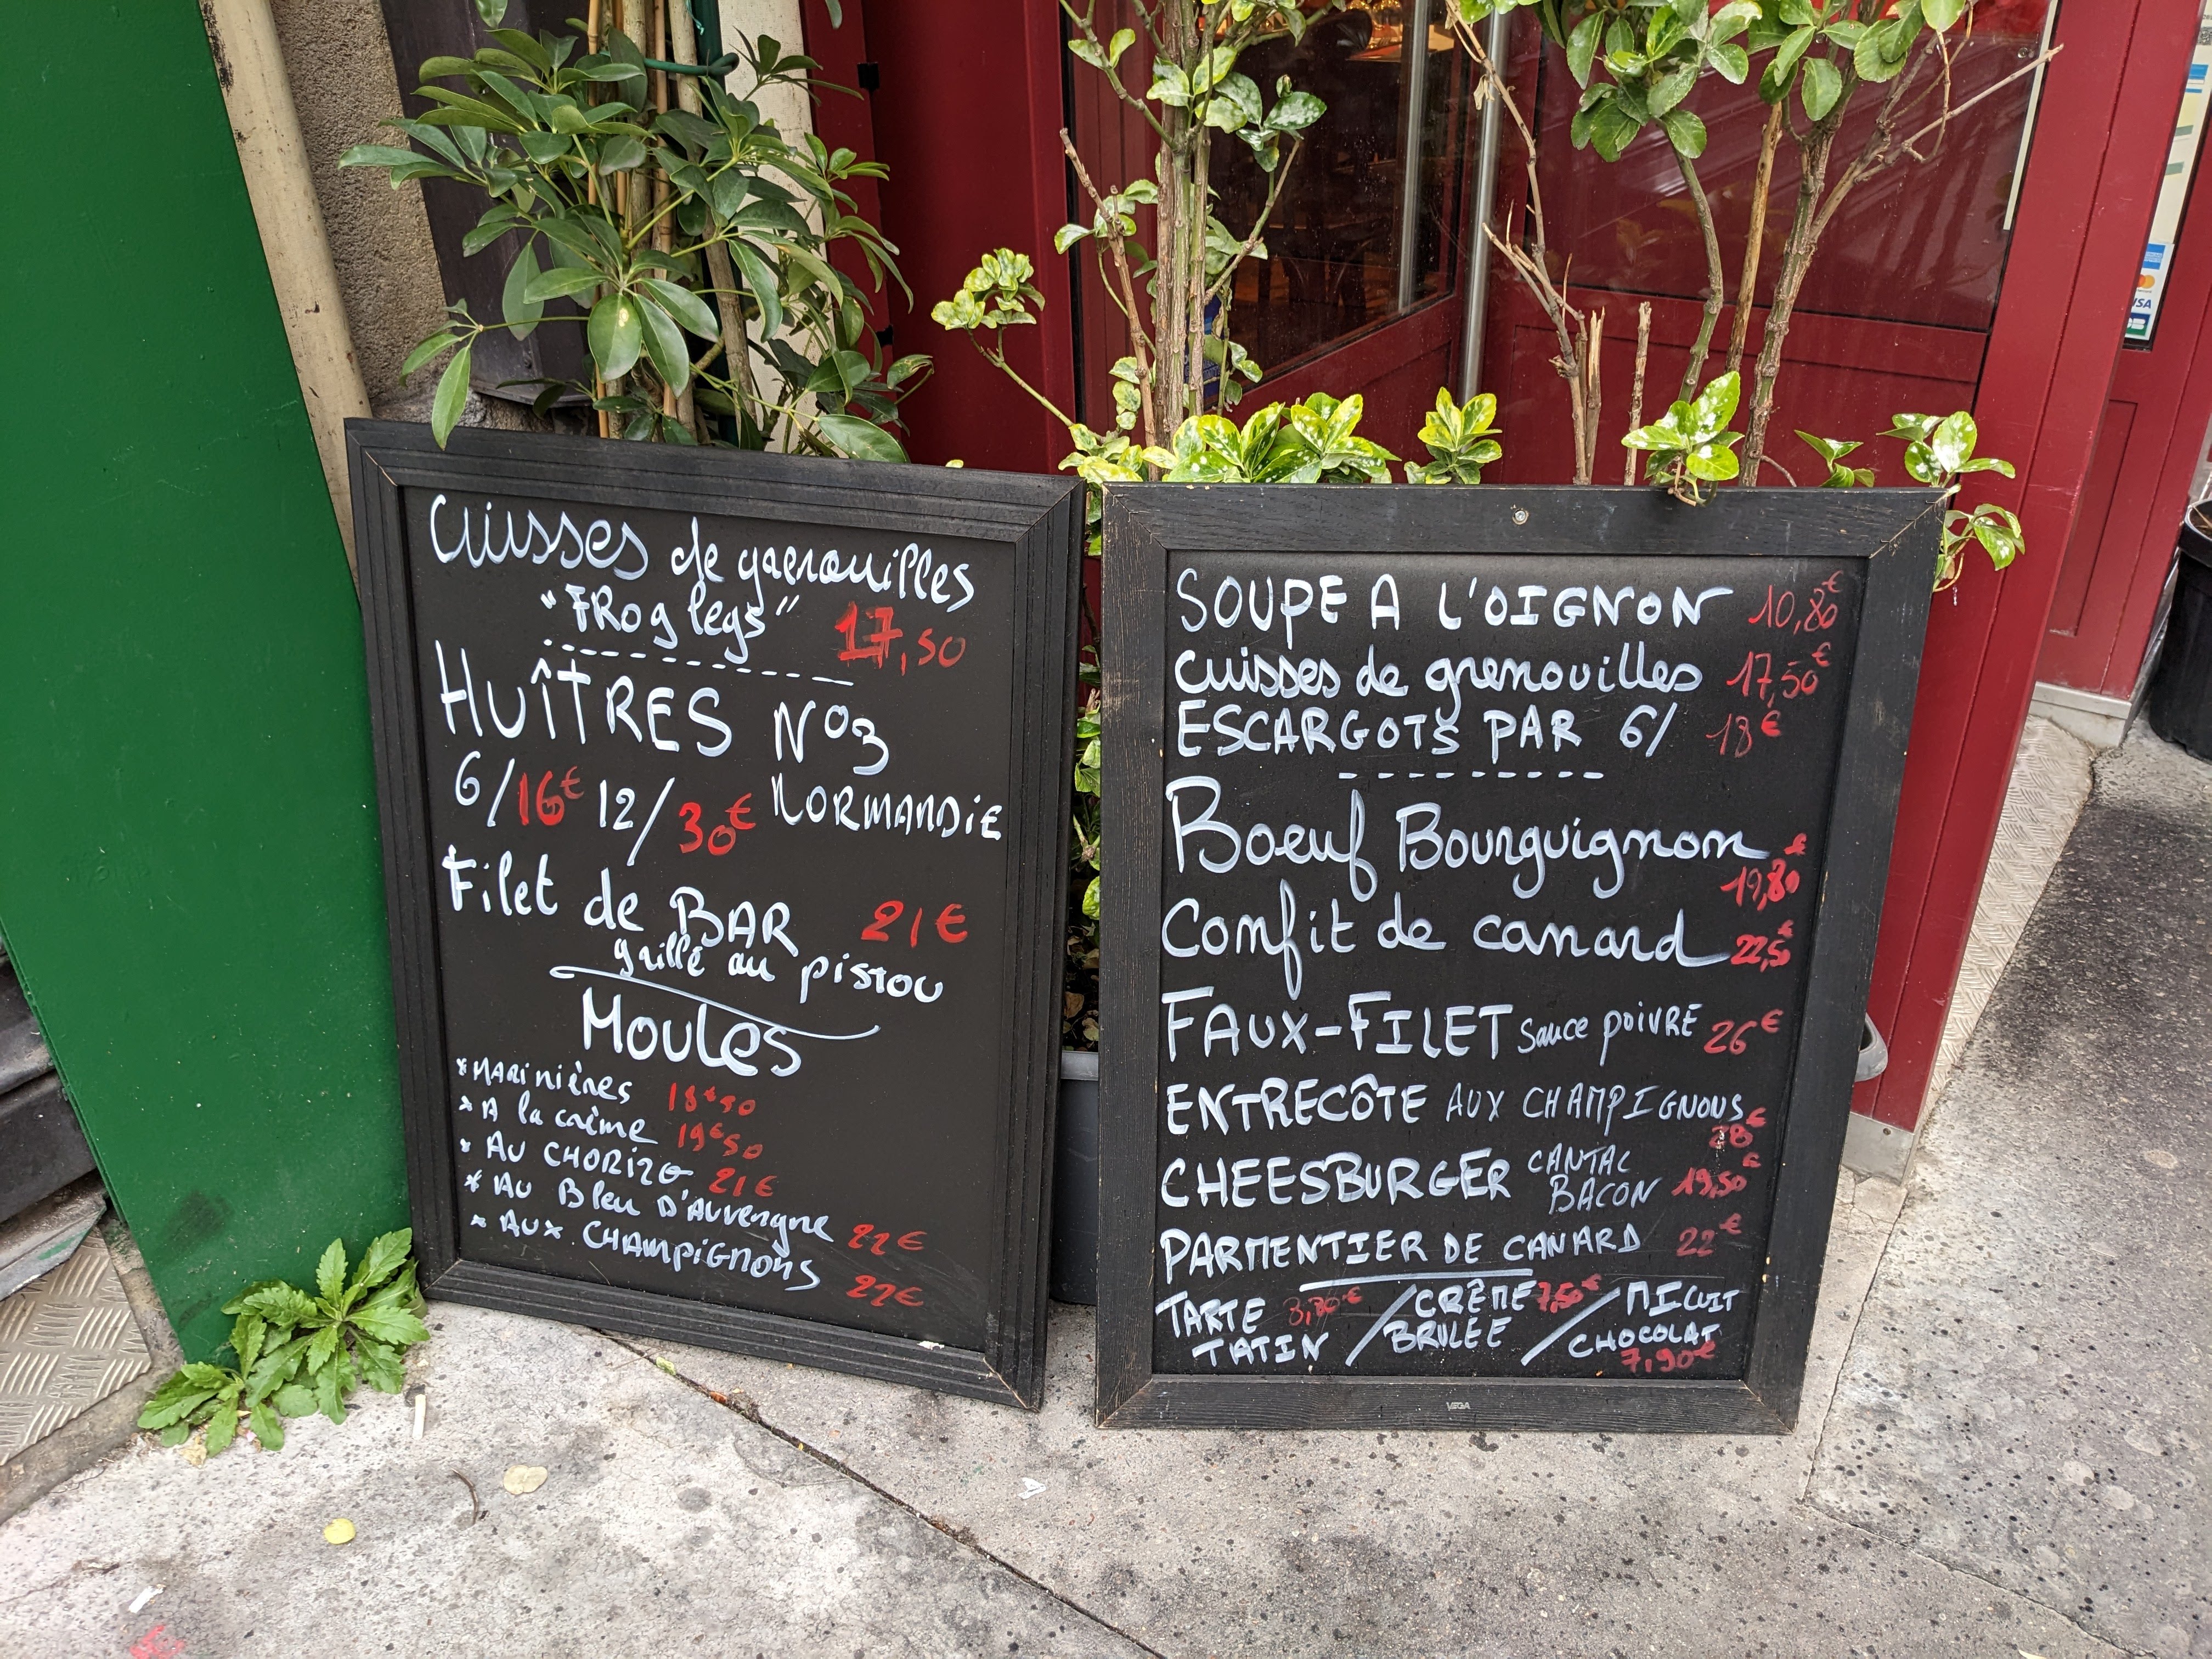 Cuisses de grenouilles
"FRog legs" 17,50
HUÎTRES N°3
6/16€ 12/30€ NORMANDIE
Filet de BAR 21€
grillé au pistou
Moules
*MARiNières 18€90
*A la crème 19€50
* AU CHORIZO 21€
* AU Bleu D'Auvergne 22€
* AUX CHAMPIGNONS 22€
SOUPE A L'OIGNON 10,80€
Cuisses de grenouilles 17,50€
ESCARGOTS PAR 6/ 13€
Boeuf Bourguignon
19,80€
Confit de canard 22,5€
FAUX-FILET Sauce poivre 26€
ENTRECÔTE AUX CHAMPIGNONS
28€
CHEESBURGER CANTAL
BACON 19,50€
PARMENTIER DE CANARD 22€
TARTE / CRÈME 7,50€ / MICUIT
TATIN BRULEE CHOCOLAT
7,90€
VEGA
VISA